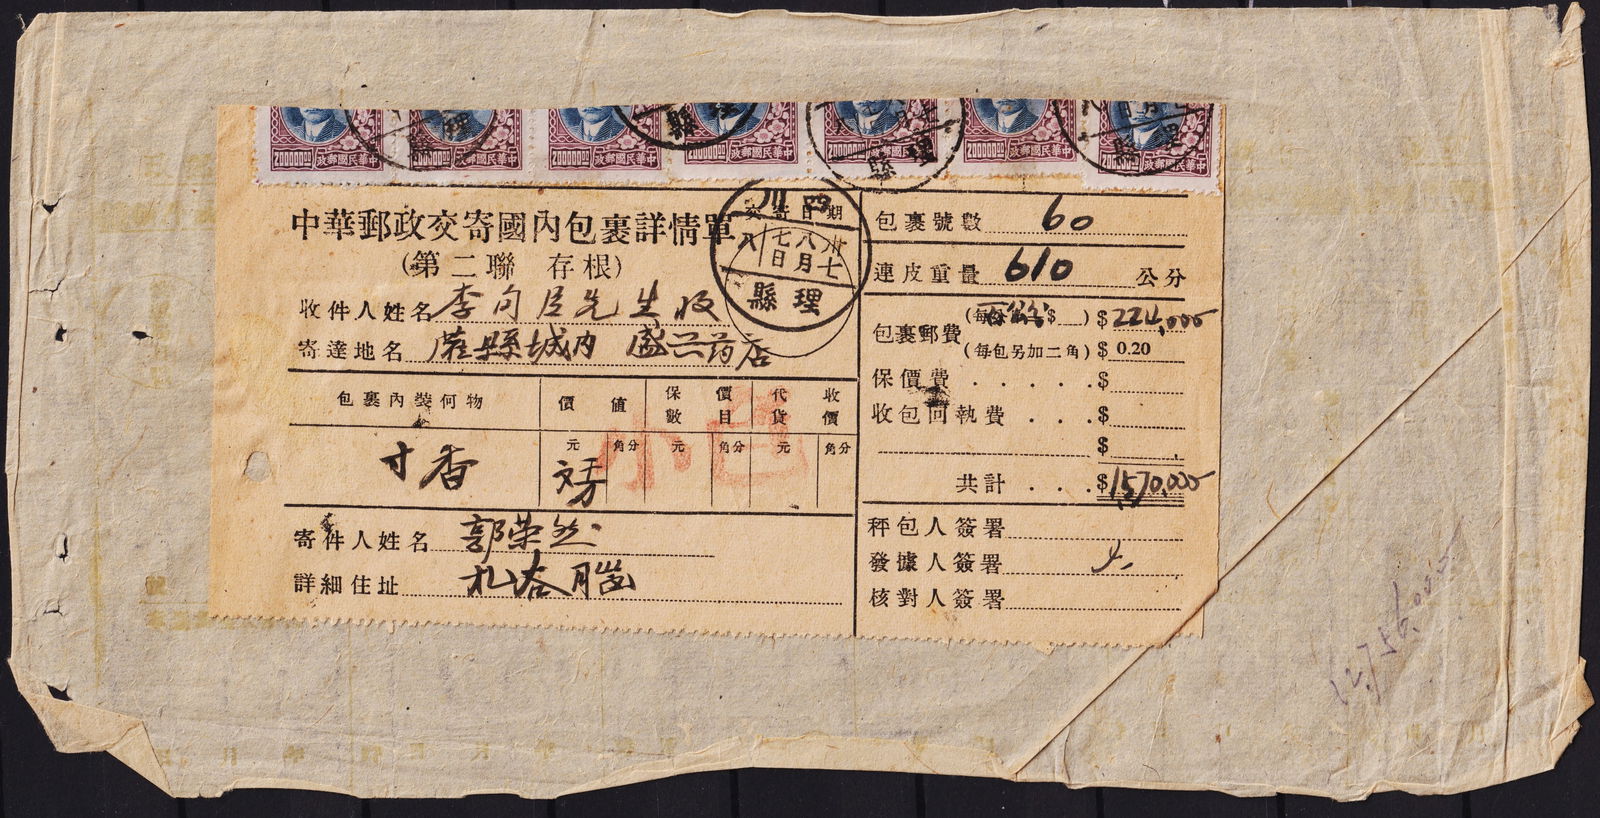 20000000 政郵國民華中
20000000 政郵國民華中
20000000 政郵國民華中
20000000 政郵國民華中
20000000 政郵國民華中
20000000 政郵國民華中
20000000 政郵國民華中
理縣
理縣
理縣
理縣
中華郵政交寄國內包裹詳情單
(第二聯 存根)
交寄日期
四川
卅七
八月
七日
八
理縣
收件人姓名 李向臣先生收
寄達地名 灌縣城內 盛兴药店
包裹內裝何物 價值 保價數目 代收貨價
元 角分 元 角分 元 角分
寸香
小包
寄件人姓名 郭荣然
詳細住址 札峇腦
包裹號數 60
連皮重量 610 公分
包裹郵費 (每 $ ) $ 224,000
(每包另加二角) $ 0.20
保價費 . . . . . $
收包回執費 . . . $
$
共計 . . . $ 1,570,000
秤包人簽署
發據人簽署
核對人簽署